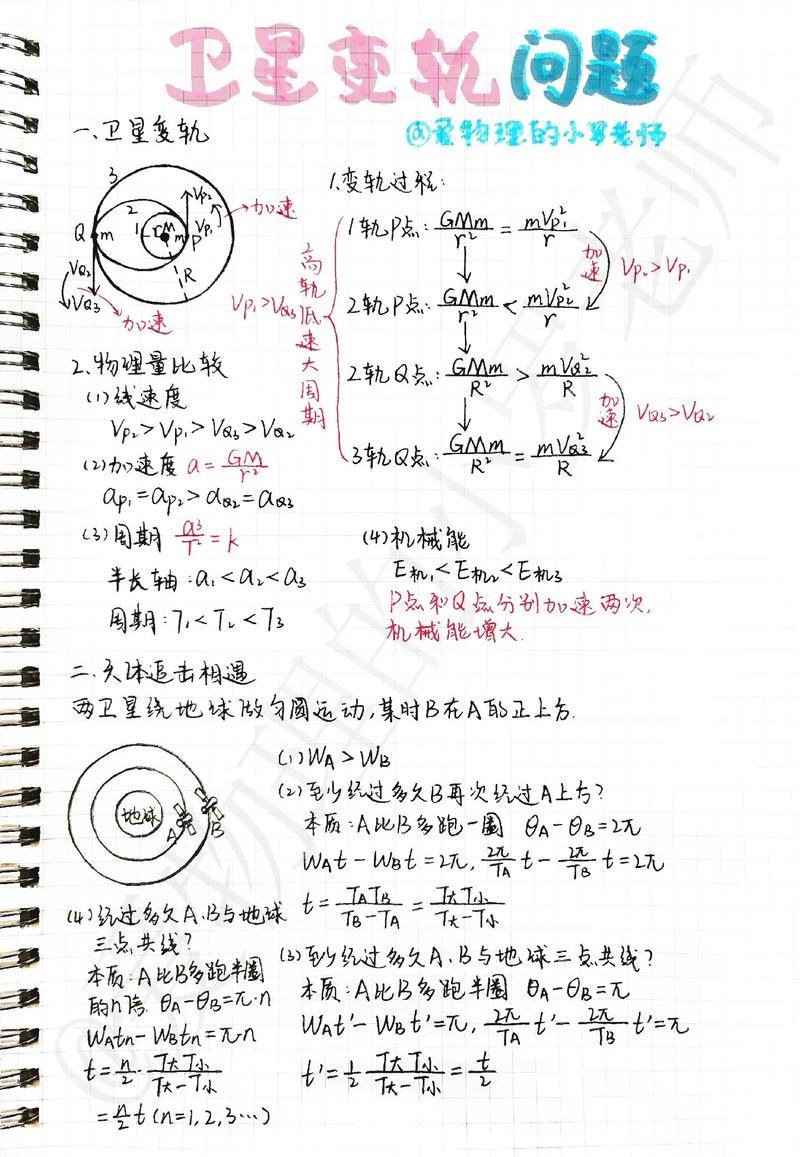 卫星变轨问题
@爱物理的小罗老师
一.卫星变轨
3
2
1
Q m r M m P
R
Vp₂
Vp₁
加速
VQ₂
VQ₃
加速
1.变轨过程:
Vp₁>VQ₃
高轨低速大周期
1轨P点: GMm/r² = mVp₁²/r
加速 Vp₂>Vp₁
2轨P点: GMm/r² < mVp₂²/r
2轨Q点: GMm/R² > mVQ₂²/R
加速 VQ₃>VQ₂
3轨Q点: GMm/R² = mVQ₃²/R
2.物理量比较
(1)线速度
Vp₂>Vp₁>VQ₃>VQ₂
(2)加速度 a=GM/r²
ap₁=ap₂>aQ₂=aQ₃
(3)周期 a³/T²=k
半长轴:a₁<a₂<a₃
周期:T₁<T₂<T₃
(4)机械能
E机₁<E机₂<E机₃
P点和Q点分别加速两次,
机械能增大.
二.天体追击相遇
两卫星绕地球做匀圆运动,某时B在A的正上方.
地球
A
B
(1)WA>WB
(2)至少经过多久B再次经过A上方?
本质:A比B多跑一圈 θA-θB=2π
WAt-WBt=2π, 2π/TA t - 2π/TB t=2π
t=TATB/(TB-TA)=T大T小/(T大-T小)
(3)至少经过多久A.B与地球三点共线?
本质:A比B多跑半圈 θA-θB=π
WAt'-WBt'=π, 2π/TA t' - 2π/TB t'=π
t'=1/2 T大T小/(T大-T小)=t/2
(4)经过多久A.B与地球
三点共线?
本质:A比B多跑半圈
的n倍. θA-θB=π·n
WAtn-WBtn=π·n
t=n/2·T大T小/(T大-T小)
=n/2 t(n=1,2,3…)
@爱物理的小罗老师